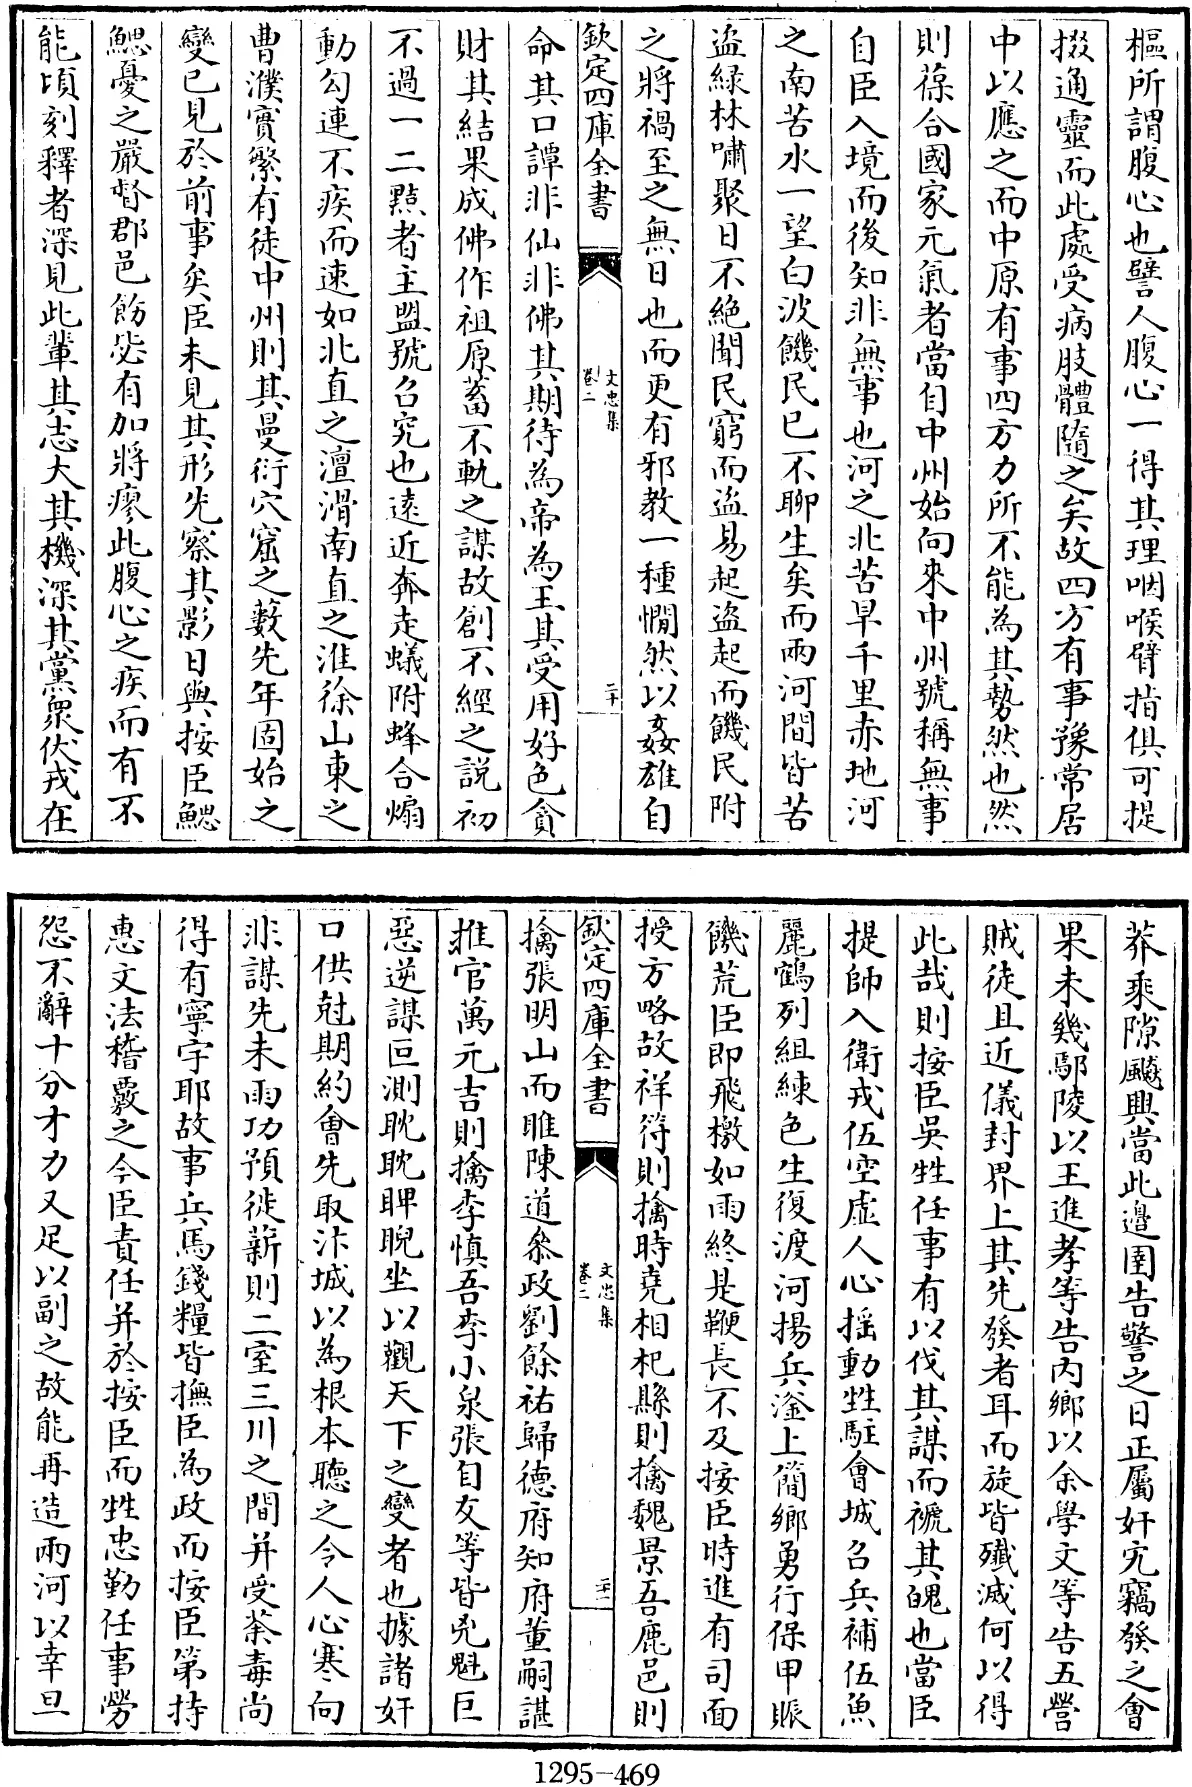 樞所謂腹心也譬人腹心一得其理咽喉臂指俱可提
掇通靈而此處受病肢體隨之矣故四方有事豫常居
中以應之而中原有事四方力所不能為其勢然也然
則葆合國家元氣者當自中州始向來中州號稱無事
自臣入境而後知非無事也河之北苦旱千里赤地河
之南苦水一望白波饑民已不聊生矣而兩河間皆苦
盜綠林嘯聚日不絕聞民窮而盜易起盜起而饑民附
之將禍至之無日也而更有邪教一種憪然以姦雄自
欽定四庫全書
文忠集
卷二
二十
命其口譚非仙非佛其期待為帝為王其受用好色貪
財其結果成佛作祖原蓄不軌之謀故創不經之說初
不過一二黠者主盟號召究也遠近奔走蟻附蜂合煽
動勾連不疾而速如北直之澶滑南直之淮徐山東之
曹濮實繁有徒中州則其曼衍穴窟之藪先年固始之
變已見於前事矣臣未見其形先察其影日與按臣鰓
鰓憂之嚴督郡邑飭毖有加將瘳此腹心之疾而有不
能頃刻釋者深見此輩其志大其機深其黨衆伏戎在
莽乘隙飈興當此邊圉告警之日正屬奸宄竊發之會
果未幾鄢陵以王進孝等告內鄉以余學文等告五營
賊徒且近儀封界上其先發者耳而旋皆殲滅何以得
此哉則按臣吳甡任事有以伐其謀而褫其魄也當臣
提師入衛戎伍空虛人心搖動甡駐會城召兵補伍魚
麗鶴列組練色生復渡河揚兵滏上簡鄉勇行保甲賑
饑荒臣即飛檄如雨終是鞭長不及按臣時進有司面
授方略故祥符則擒時堯相杞縣則擒魏景吾鹿邑則
欽定四庫全書
文忠集
卷二
二十一
擒張明山而睢陳道叅政劉餘祐歸德府知府董嗣諶
推官萬元吉則擒李慎吾李小泉張自友等皆兇魁巨
惡逆謀叵測眈眈睥睨坐以觀天下之變者也據諸奸
口供尅期約會先取汴城以為根本聽之令人心寒向
非謀先未雨功預徙薪則二室三川之間并受荼毒尚
得有寧宇耶故事兵馬錢糧皆撫臣為政而按臣第持
惠文法稽覈之今臣責任并於按臣而甡忠勤任事勞
怨不辭十分才力又足以副之故能再造兩河以幸旦
1295-469